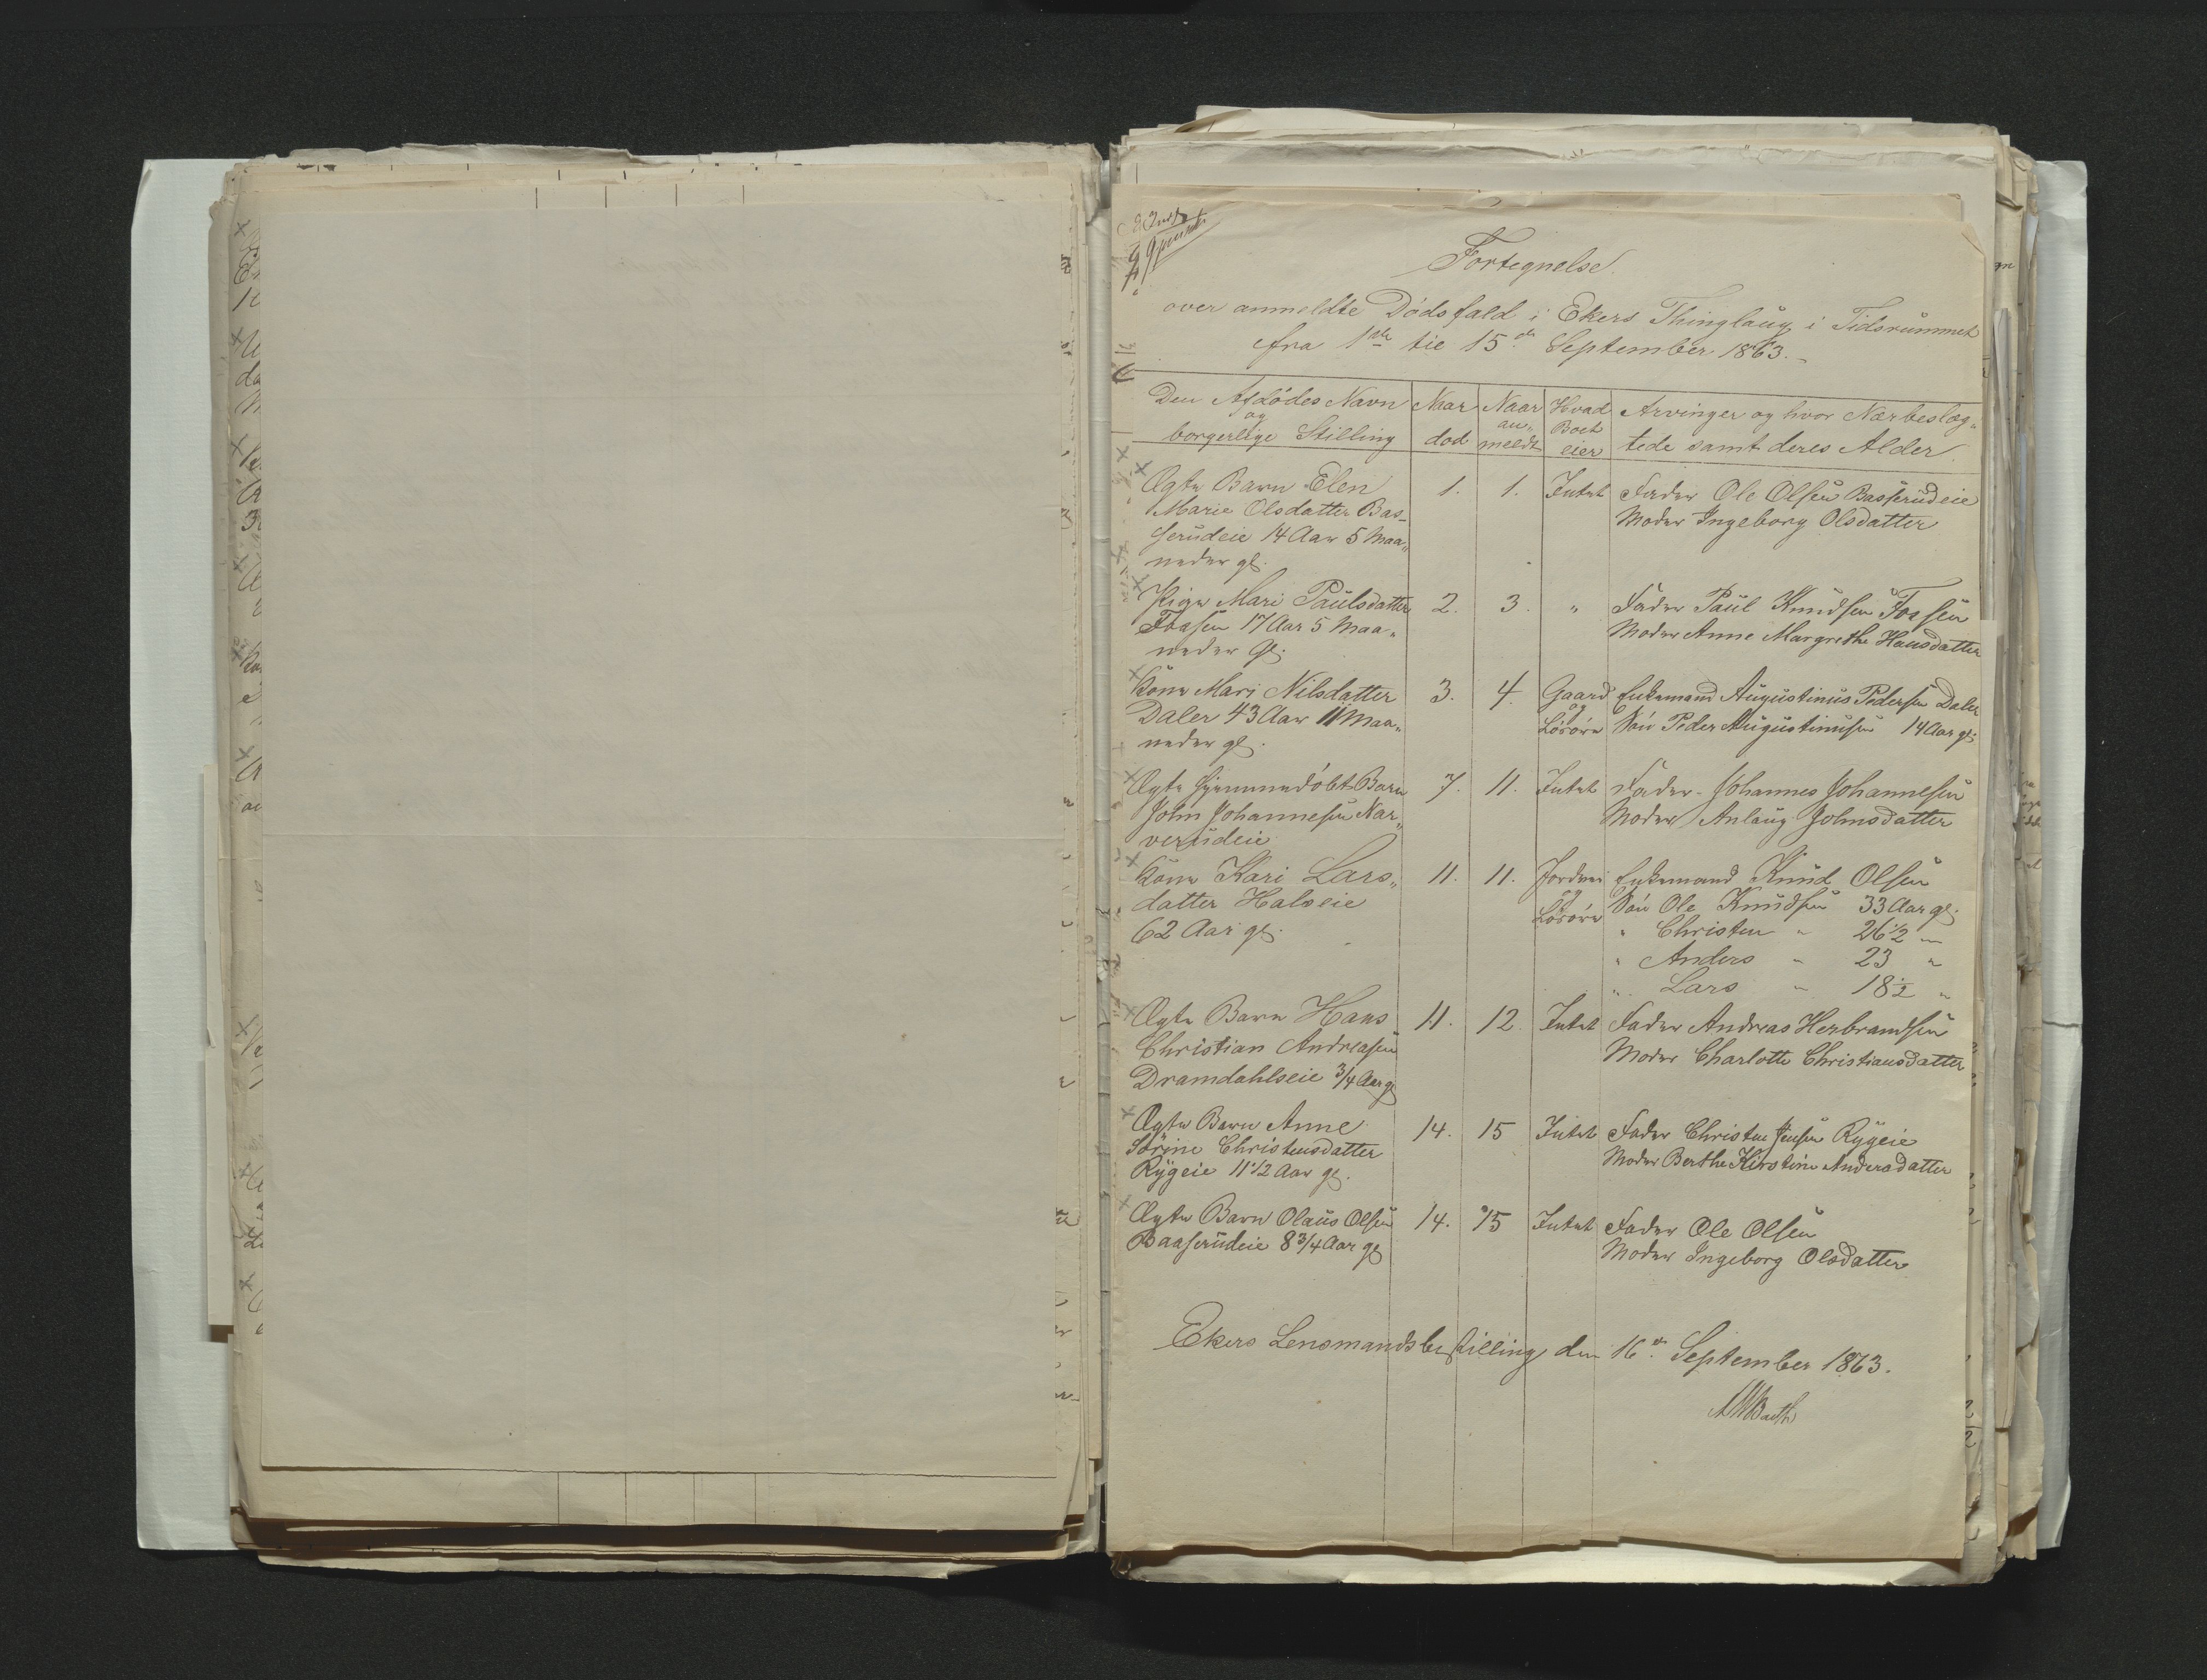 Fortegnelse
over anmeldte Dödsfald i Ekers Thinglaug i Tidsrummet
fra 1ste til 15de September 1863.
Den Afdödes Navn og borgerlige Stilling | Naar död | Naar an„meldt | Hvad Boet eier | Arvinger og hvor Nærbeslæg„tede samt deres Alder.
Ægte Barn Elen | 1. | 1. | Intet | Fader Ole Olsen Basserudeie
Marie Olsdatter Bas- | Moder Ingeborg Olsdatter
serudeie 14 Aar 5 Maa„
neder gl.
Pige Mari Paulsdatter | 2. | 3. | „ | Fader Paul Knudsen Fossen
Fossen 17 Aar 5 Maa„ | Moder Anne Margrethe Hansdatter
neder gl.
Kone Mari Nilsdatter | 3. | 4. | Gaard og Lösöre | Enkemand Augustinus Pedersen Daler
Daler 43 Aar 11 Maa„ | Sön Peder Augustinusen 14 Aar gl.
neder gl.
Ægte hjemmedöbt Barn | 7. | 11. | Intet | Fader Johannes Johannesen
John Johannesen Nar„ | Moder Anlaug Johnsdatter
verudeie
Kone Kari Lars„ | 11. | 11. | Jordvei og Lösöre | Enkemand Knud Olsen
datter Halseie | Sön Ole Knudsen 33 Aar gl.
62 Aar gl. | „ Christen „ 26 1/2 „
„ Anders „ 23 „
„ Lars „ 18 1/2 „
Ægte Barn Hans | 11. | 12. | Intet | Fader Andreas Herbrandsen
Christian Andreasen | Moder Charlotte Christiansdatter
Dramdahlseie 3/4 Aar gl
Ægte Barn Anne | 14. | 15 | Intet | Fader Christen Jensen Rygeie
Sörine Christensdatter | Moder Berthe Kirstine Andersdatter
Rygeie 11 1/2 Aar gl.
Ægte Barn Olaus Olsen | 14. | 15 | Intet | Fader Ole Olsen
Baaserudeie 8 3/4 Aar gl | Moder Ingeborg Olsdatter
Ekers Lensmandsbestilling den 16de September 1863.